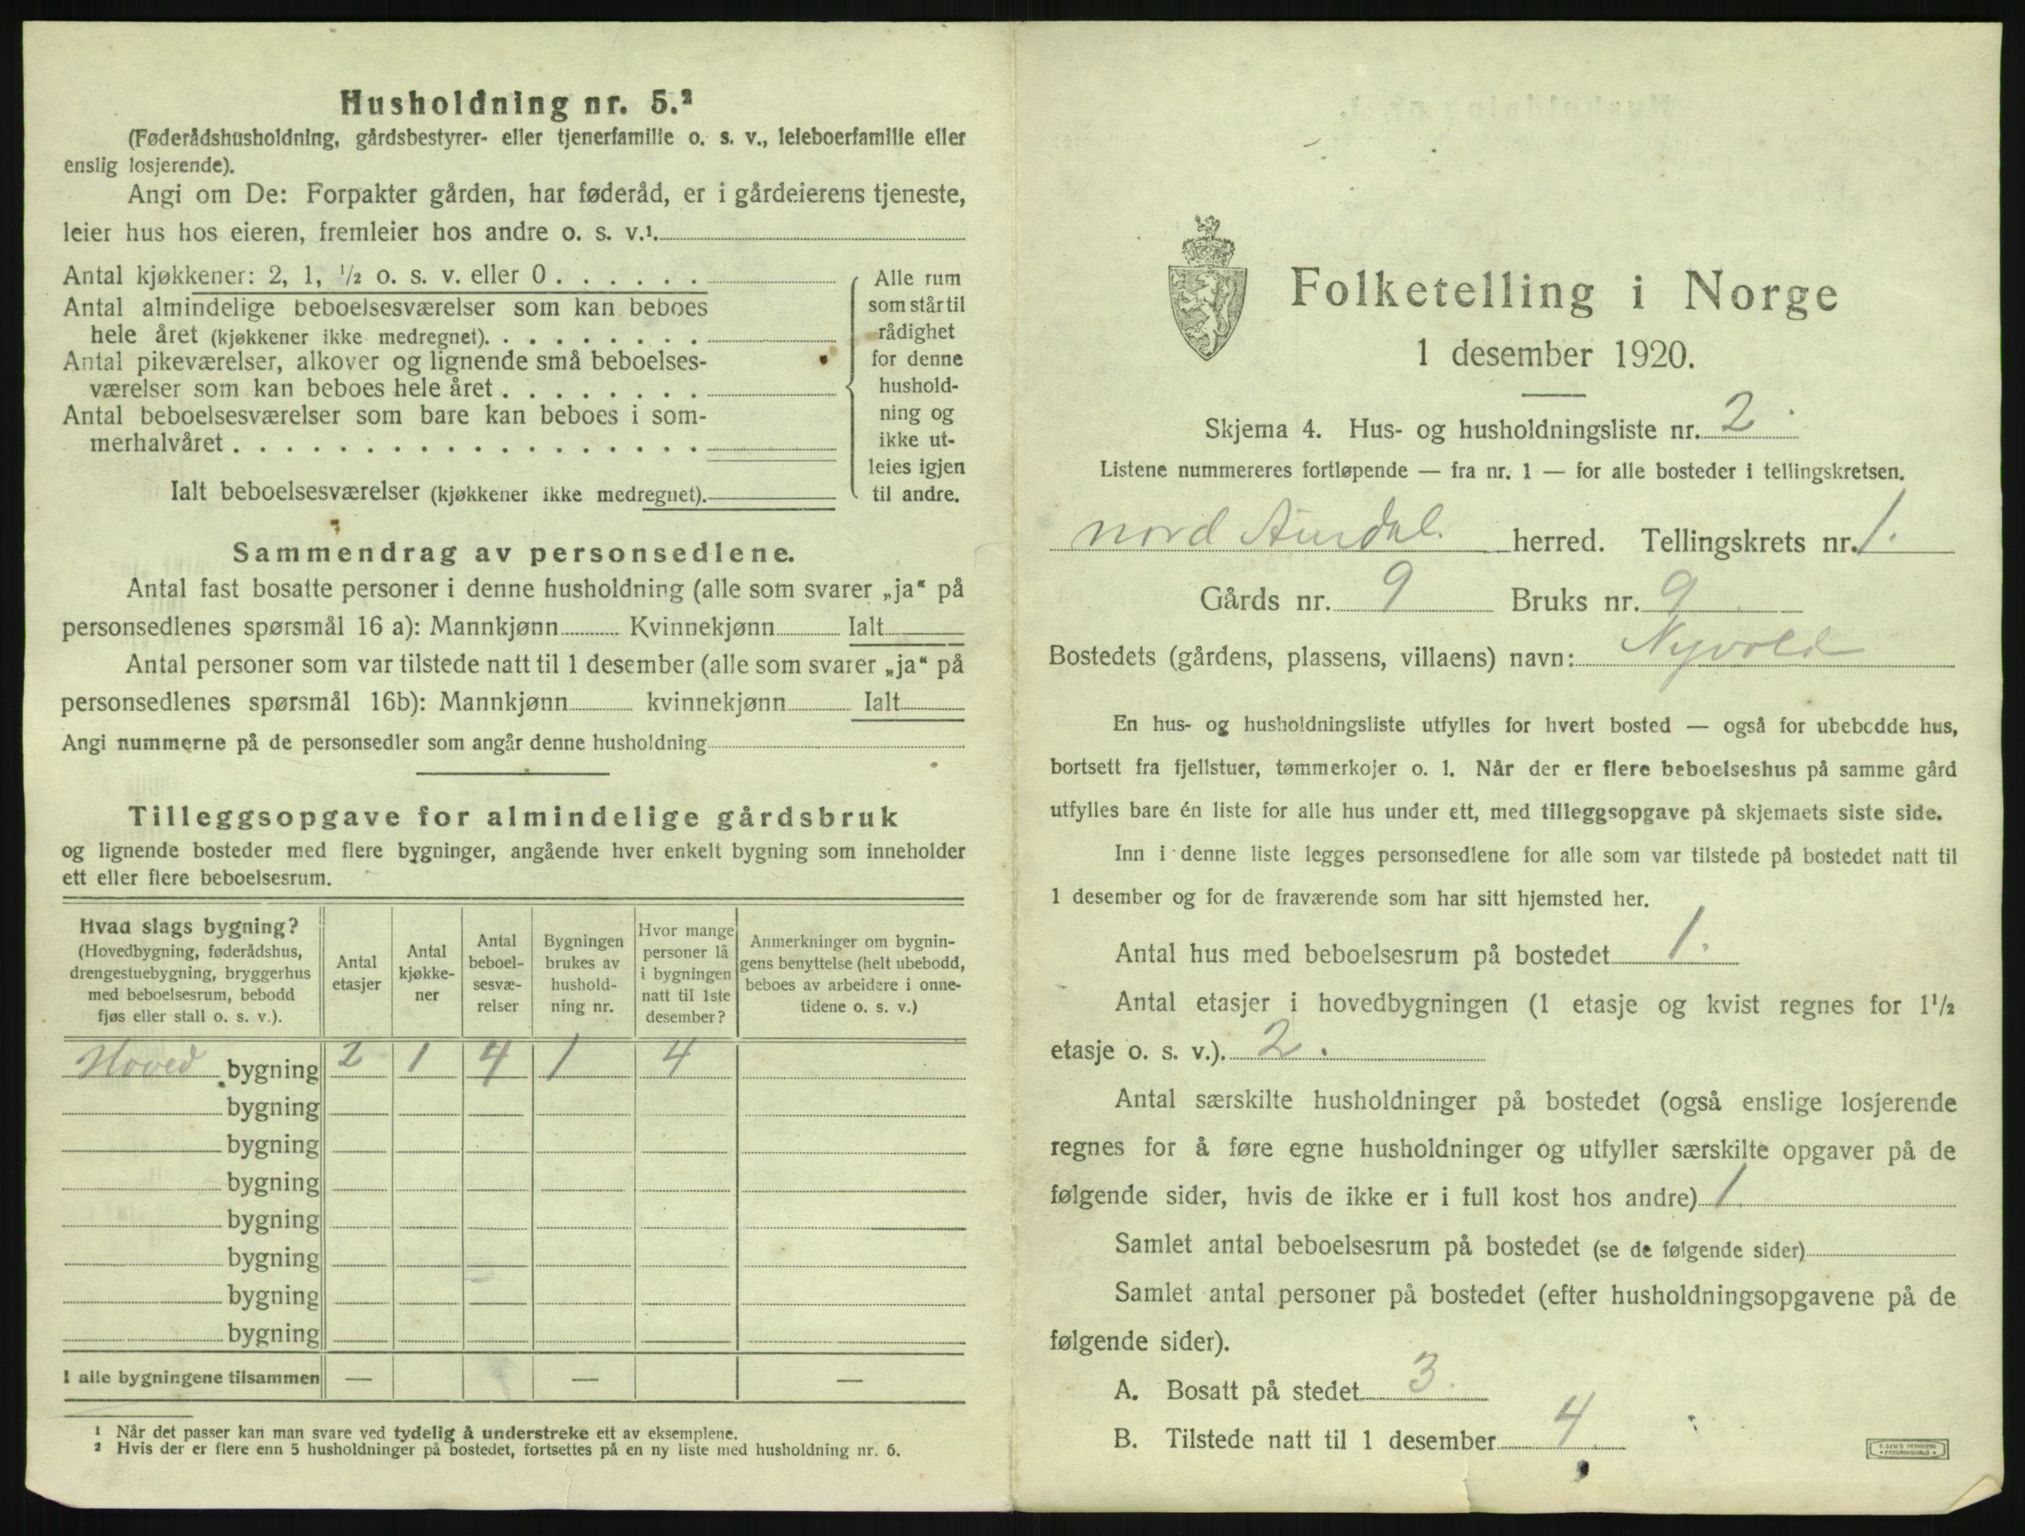 Husholdning nr. 5.²
(Føderådshusholdning, gårdsbestyrer- eller tjenerfamilie o. s. v., leieboerfamilie eller
enslig losjerende).
Angi om De: Forpakter gården, har føderåd, er i gårdeierens tjeneste,
leier hus hos eieren, fremleier hos andre o. s. v.¹.
Antal kjøkkener: 2, 1, ½ o. s. v. eller 0 . . . . . .
Antal almindelige beboelsesværelser som kan beboes
hele året (kjøkkener ikke medregnet). . . . . . . . .
Antal pikeværelser, alkover og lignende små beboelses-
værelser som kan beboes hele året . . . . . . . .
Antal beboelsesværelser som bare kan beboes i som-
merhalvåret . . . . . . . . . . . . . . . . . .
Ialt beboelsesværelser (kjøkkener ikke medregnet).
Alle rum
som står til
rådighet
for denne
hushold-
ning og
ikke ut-
leies igjen
til andre.
Sammendrag av personsedlene.
Antal fast bosatte personer i denne husholdning (alle som svarer „ja“ på
personsedlenes spørsmål 16 a): Mannkjønn Kvinnekjønn Ialt
Antal personer som var tilstede natt til 1 desember (alle som svarer „ja“ på
personsedlenes spørsmål 16b): Mannkjønn kvinnekjønn Ialt
Angi nummerne på de personsedler som angår denne husholdning
Tilleggsopgave for almindelige gårdsbruk
og lignende bosteder med flere bygninger, angående hver enkelt bygning som inneholder
ett eller flere beboelsesrum.
Hvad slags bygning?
(Hovedbygning, føderådshus,
drengestuebygning, bryggerhus
med beboelsesrum, bebodd
fjøs eller stall o. s. v.).
Antal
etasjer
Antal
kjøkke-
ner
Antal
beboel-
sesvæ-
relser
Bygningen
brukes av
hushold-
ning nr.
Hvor mange
personer lå
i bygningen
natt til 1ste
desember?
Anmerkninger om bygnin-
gens benyttelse (helt ubebodd,
beboes av arbeidere i onne-
tidene o. s. v.)
Hoved bygning 2 1 4 1 4
bygning
bygning
bygning
bygning
bygning
bygning
bygning
I alle bygningene tilsammen — — —
¹ Når det passer kan man svare ved tydelig å understreke ett av eksemplene.
² Hvis der er flere enn 5 husholdninger på bostedet, fortsettes på en ny liste med husholdning nr. 6.
Folketelling i Norge
1 desember 1920.
Skjema 4. Hus- og husholdningsliste nr. 2
Listene nummereres fortløpende — fra nr. 1 — for alle bosteder i tellingskretsen.
nord Aurdal. herred. Tellingskrets nr. 1.
Gårds nr. 9 Bruks nr. 9
Bostedets (gårdens, plassens, villaens) navn: Nyvold
En hus- og husholdningsliste utfylles for hvert bosted — også for ubebodde hus,
bortsett fra fjellstuer, tømmerkojer o. l. Når der er flere beboelseshus på samme gård
utfylles bare én liste for alle hus under ett, med tilleggsopgave på skjemaets siste side.
Inn i denne liste legges personsedlene for alle som var tilstede på bostedet natt til
1 desember og for de fraværende som har sitt hjemsted her.
Antal hus med beboelsesrum på bostedet 1.
Antal etasjer i hovedbygningen (1 etasje og kvist regnes for 1½
etasje o. s. v.). 2.
Antal særskilte husholdninger på bostedet (også enslige losjerende
regnes for å føre egne husholdninger og utfyller særskilte opgaver på de
følgende sider, hvis de ikke er i full kost hos andre) 1
Samlet antal beboelsesrum på bostedet (se de følgende sider)
Samlet antal personer på bostedet (efter husholdningsopgavene på de
følgende sider).
A. Bosatt på stedet 3
B. Tilstede natt til 1 desember 4